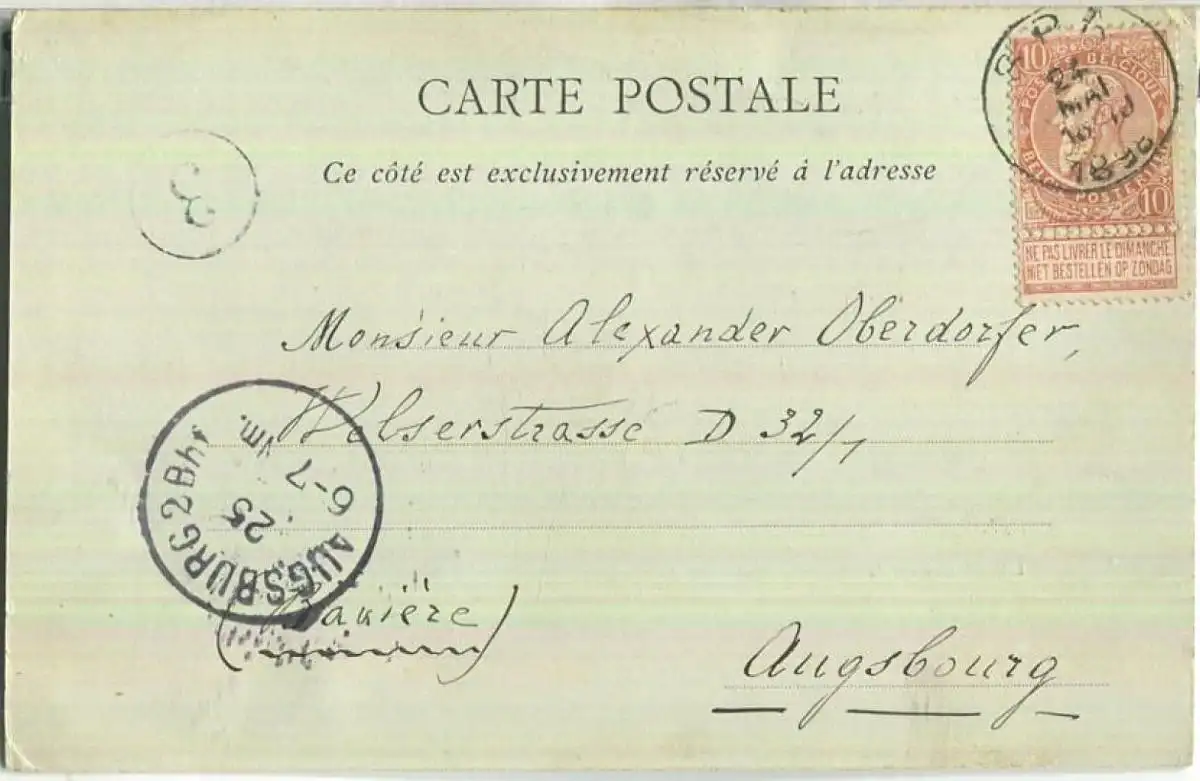 CARTE POSTALE
Ce côté est exclusivement réservé à l'adresse
SPA
24
MAI
1898
10 10
POSTES BELGIQUE
10
NE PAS LIVRER LE DIMANCHE
NIET BESTELLEN OP ZONDAG
3
Monsieur Alexander Oberdorfer,
Welserstrasse D 32/1
AUGSBURG 2 Bhf
25
6-7 Vm.
(Bavière)
Augsbourg